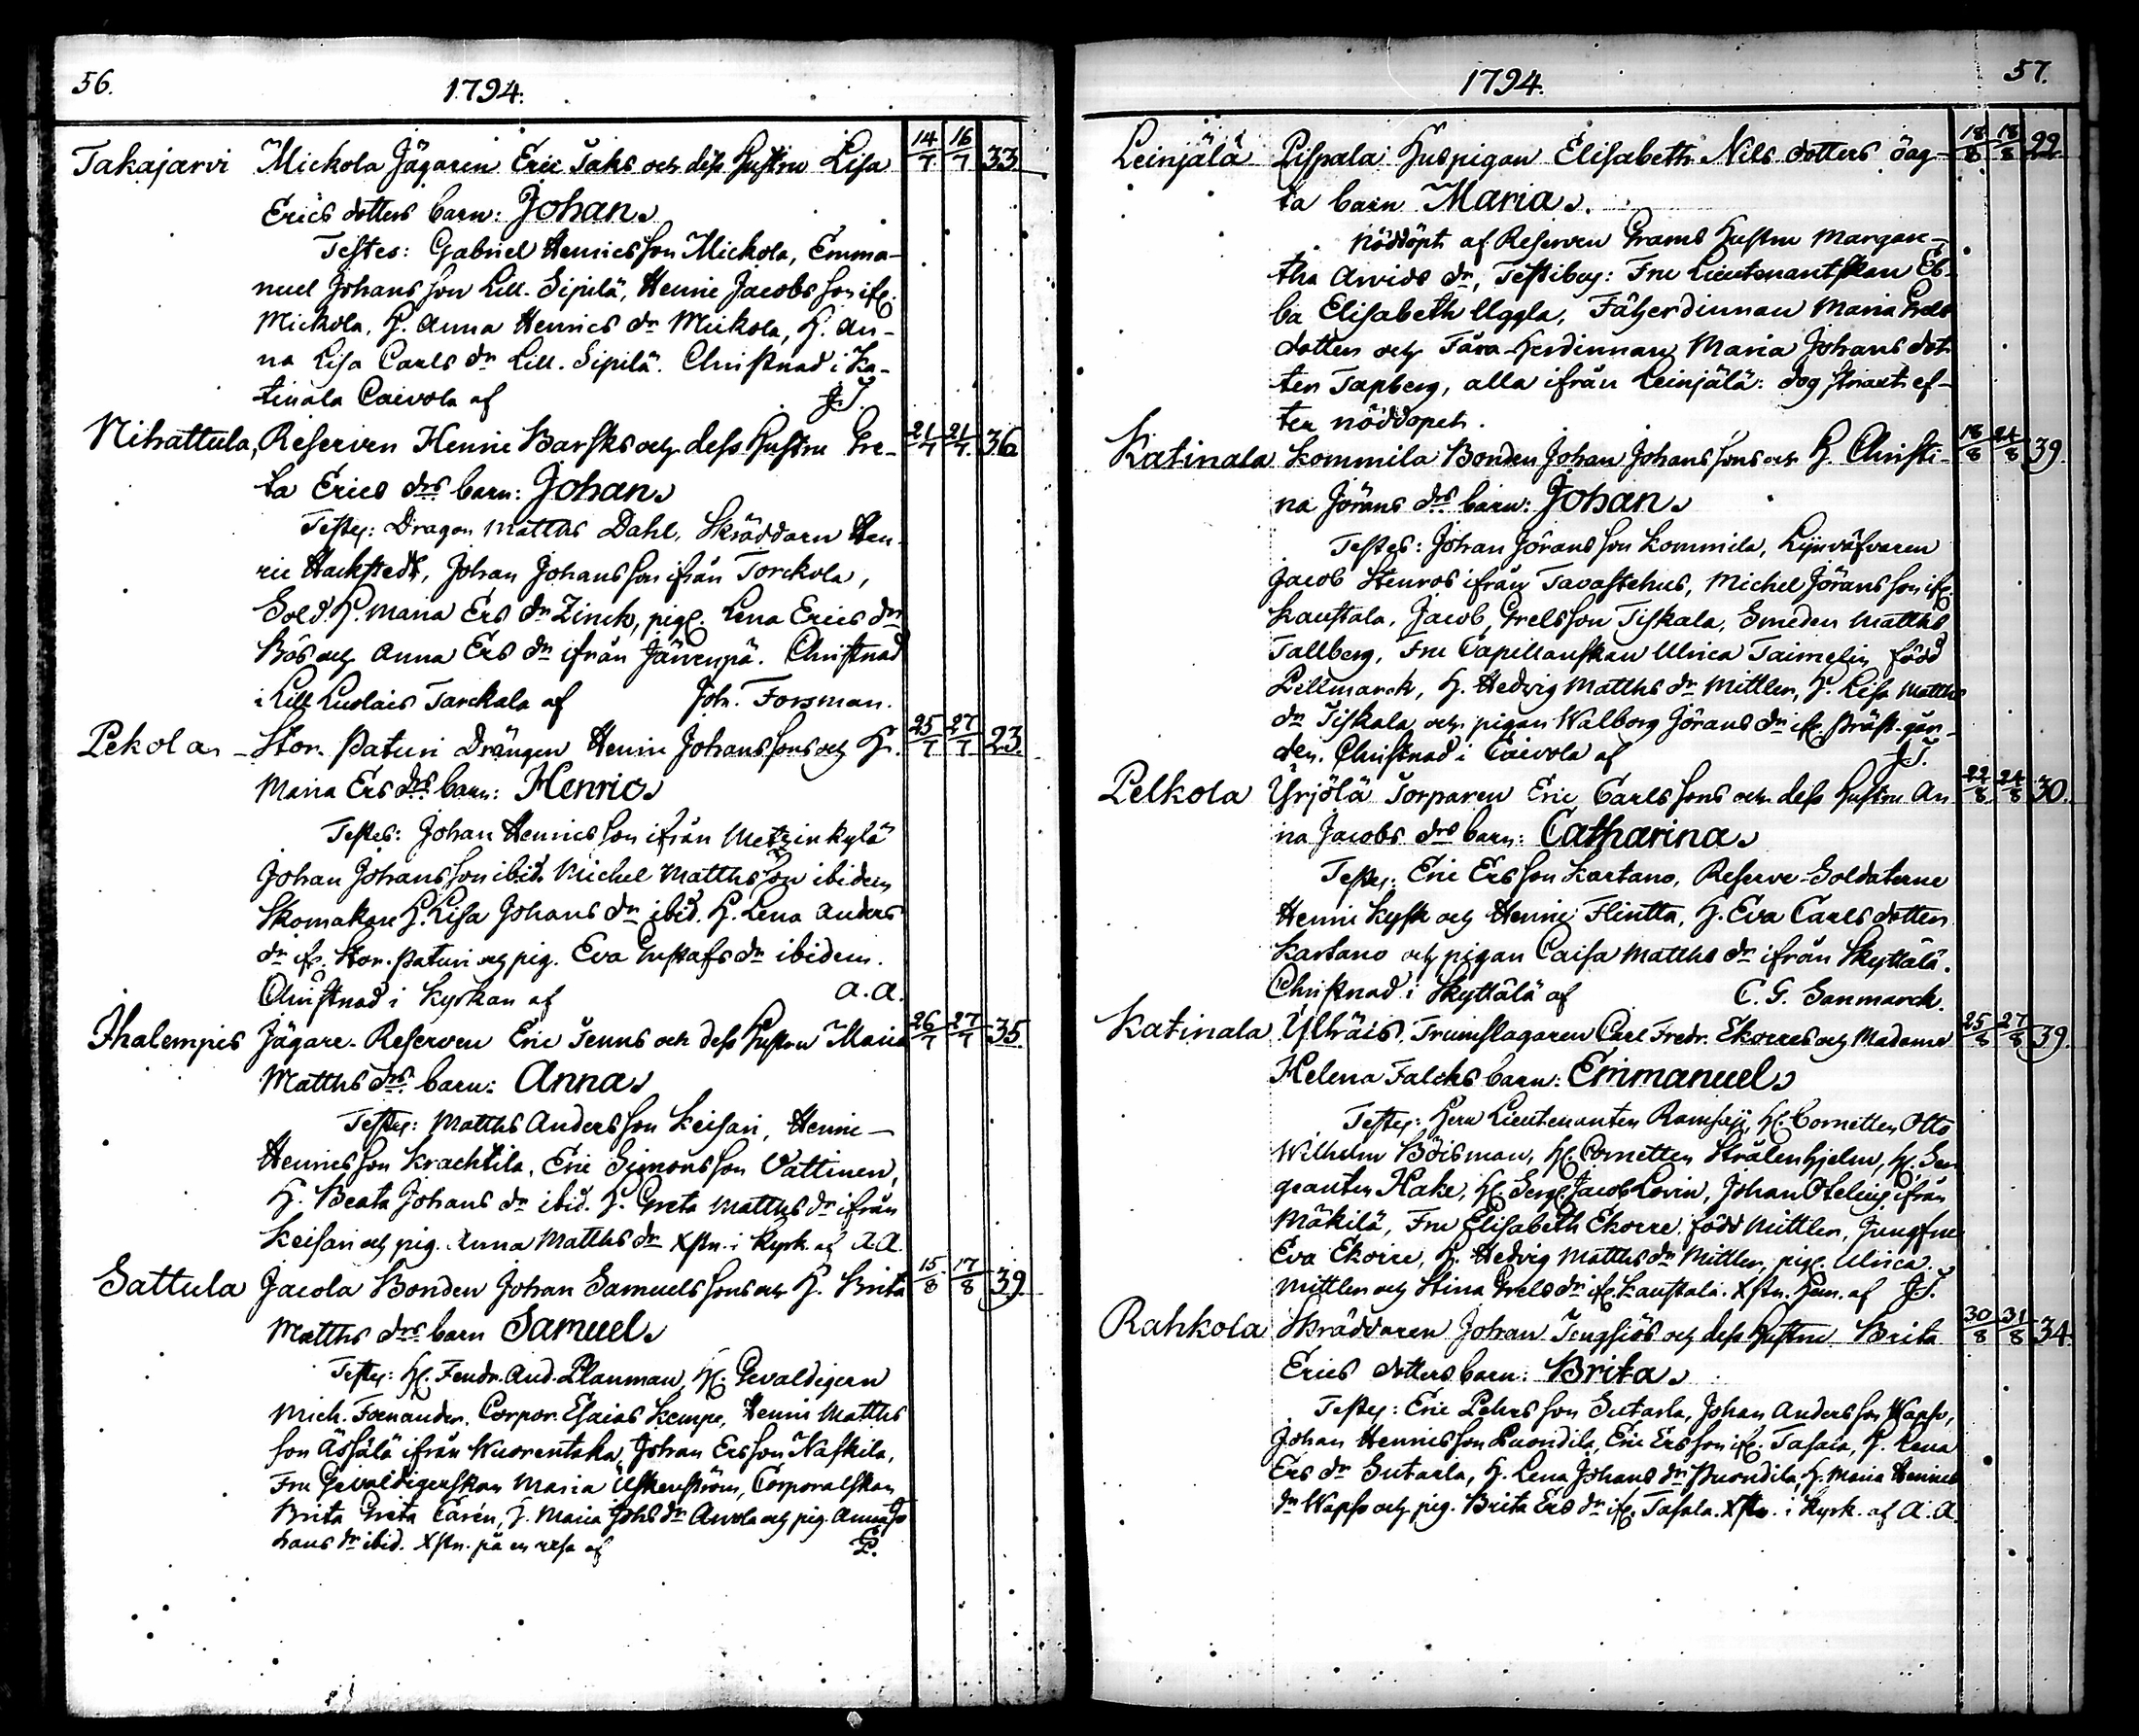 56.
1794.
Takajarvi Mickola Jägaren Eric Taks och dess Hustru Lisa 14/7 16/7 33.
Erics dotters barn: Johan
Testes: Gabriel Henricsson Mickola, Emma-
nuel Johansson Lill-Sipilä, Henric Jacobsson ifr.
Mickola, H. Anna Henrics dr Mickola, H. An-
na Lisa Carls dr Lill. Sipilä. Christnad i Ka-
tinala Caivola af J.T.
Nihattula, Reserven Henric Barsks och dess Hustru Gre- 21/7 21/7 36
ta Erics drs barn: Johan
Testes: Dragon Matths Dahl, Skräddarn Hen-
ric Hackstedt, Johan Johansson ifrån Torckola,
Sold. H. Maria Ers dr Zinck, pig. Lena Erics dr
Bös och Anna Ers dr ifrån Järvenpä. Christnad
i Lill Luolais Tarckala af Joh. Forsman.
Pekola Stor-Paturi Drängen Henric Johanssons och H. 25/7 27/7 23.
Maria Ers drs barn: Henric
Testes: Johan Henricsson ifrån Metzinkylä
Johan Johansson ibid. Michel Matthsson ibidem
Skomakare H. Lisa Johans dr ibid. H. Lena Anders
dr ifr. Stor-Paturi och pig. Eva Gustafs dr ibidem.
Christnad i Kyrkan af A.A.
Ihalempis Jägare-Reserven Eric Tenns och dess Hustru Maria 26/7 27/7 35
Matths drs barn: Anna
Testes: Matths Andersson Keisari, Henric
Henricsson Krachtila, Eric Simonsson Vattinen,
H. Beata Johans dr ibid. H. Greta Matths dr ifrån
Keisari och pig. Anna Matths dr Xstn. i Kyrk. af A.A.
Sattula Jacola Bonden Johan Samuelssons och H. Brita 15/8 17/8 39.
Matths drs barn Samuel
Testes: H. Fendr. And. Planman, H. Gevaldigern
Mich. Fornander, Corpor. Esaias Kempe, Henric Matths
son Ässälä ifrån Wuorentaka, Johan Ersson Näskila,
Fru Gevaldigerskan Maria Uskenström, Corporalskan
Brita Greta Carén, H. Maria Johs dr Anvola och pig. Anna Jo
hans dr ibid. Xstn. på en resa af P.
1794.
57.
Leinjälä Pispala Huspigan Elisabeth Nils dotters oäg- 18/8 18/8 22
ta barn Maria.
Nöddöpt af Reserven Grams Hustru Margare-
tha Arvids dr, Testibus: Fru Lieutenantskan Eb-
ba Elisabeth Uggla, Fäherdinnan Maria Grels
dotter och Fåra-herdinnan Maria Johans dot-
ter Tapberg, alla ifrån Leinjälä: dog straxt ef-
ter nöddopet.
Katinala Kommila Bonden Johan Johanssons och H. Christi- 18/8 24/8 39.
na Jörans drs barn: Johan
Testes: Johan Göransson Kommila, Lijnväfvaren
Jacob Stenros ifrån Tavastehus, Michel Jöransson ifr.
Kaustala, Jacob Grelsson Tiskala, Smeden Matths
Tallberg, Fru Capellanskan Ulrica Taimelin född
Lillmarck, H. Hedvig Matths dr Mittler, H. Lisa Matths
dr Tiskala och pigan Walborg Jörans dr ifr. Präst-går-
den. Christnad i Caivola af J.T.
Pelkola Yrjölä Torparen Eric Carlssons och dess Hustru An 22/8 24/8 30.
na Jacobs drs barn: Catharina
Testes: Eric Ersson Kartano, Reserve-Soldaterne
Henric Kysk och Henric Flintta, H. Eva Carls dotter
Kartano och pigan Caisa Matths dr ifrån Skyttälä.
Christnad i Skyttälä af C. G. Sanmarck.
Katinala Ylhäis Trumslagaren Carl Fredr. Ekorres och Madame 25/8 27/8 39.
Helena Falcks barn: Emmanuel
Testes: Herr Lieutenanten Ramsay, H. Cornetten Otto
Wilhelm Böisman, H. Cornetten Strålenhjelm, H. Ser
geanten Hake, H. Serg. Jacob Lovin, Johan Oteling ifrån
Mäkilä, Fru Elisabeth Ekorre född Mittler, Jungfru
Eva Ekorre, H. Hedvig Matths dr Mittler, pig. Ulrica
Mittler och Stina Grels dr ifr. Kaustala. Xstn. Hem. af J.T.
Rahkola Skräddaren Johan Tengsiös och dess Hustru Brita 30/8 31/8 34
Erics dotters barn: Brita
Testes: Eric Pehrsson Sutarla, Johan Andersson Wapso,
Johan Henricsson Puondila, Eric Ersson ifr. Tasaia, H. Lena
Ers dr Sutarla, H. Lena Johans dr Puondila, H. Maria Henrics
dr Wapso och pig. Brita Ers dr ifr. Tasala. Xstn. i Kyrk. af A.A.